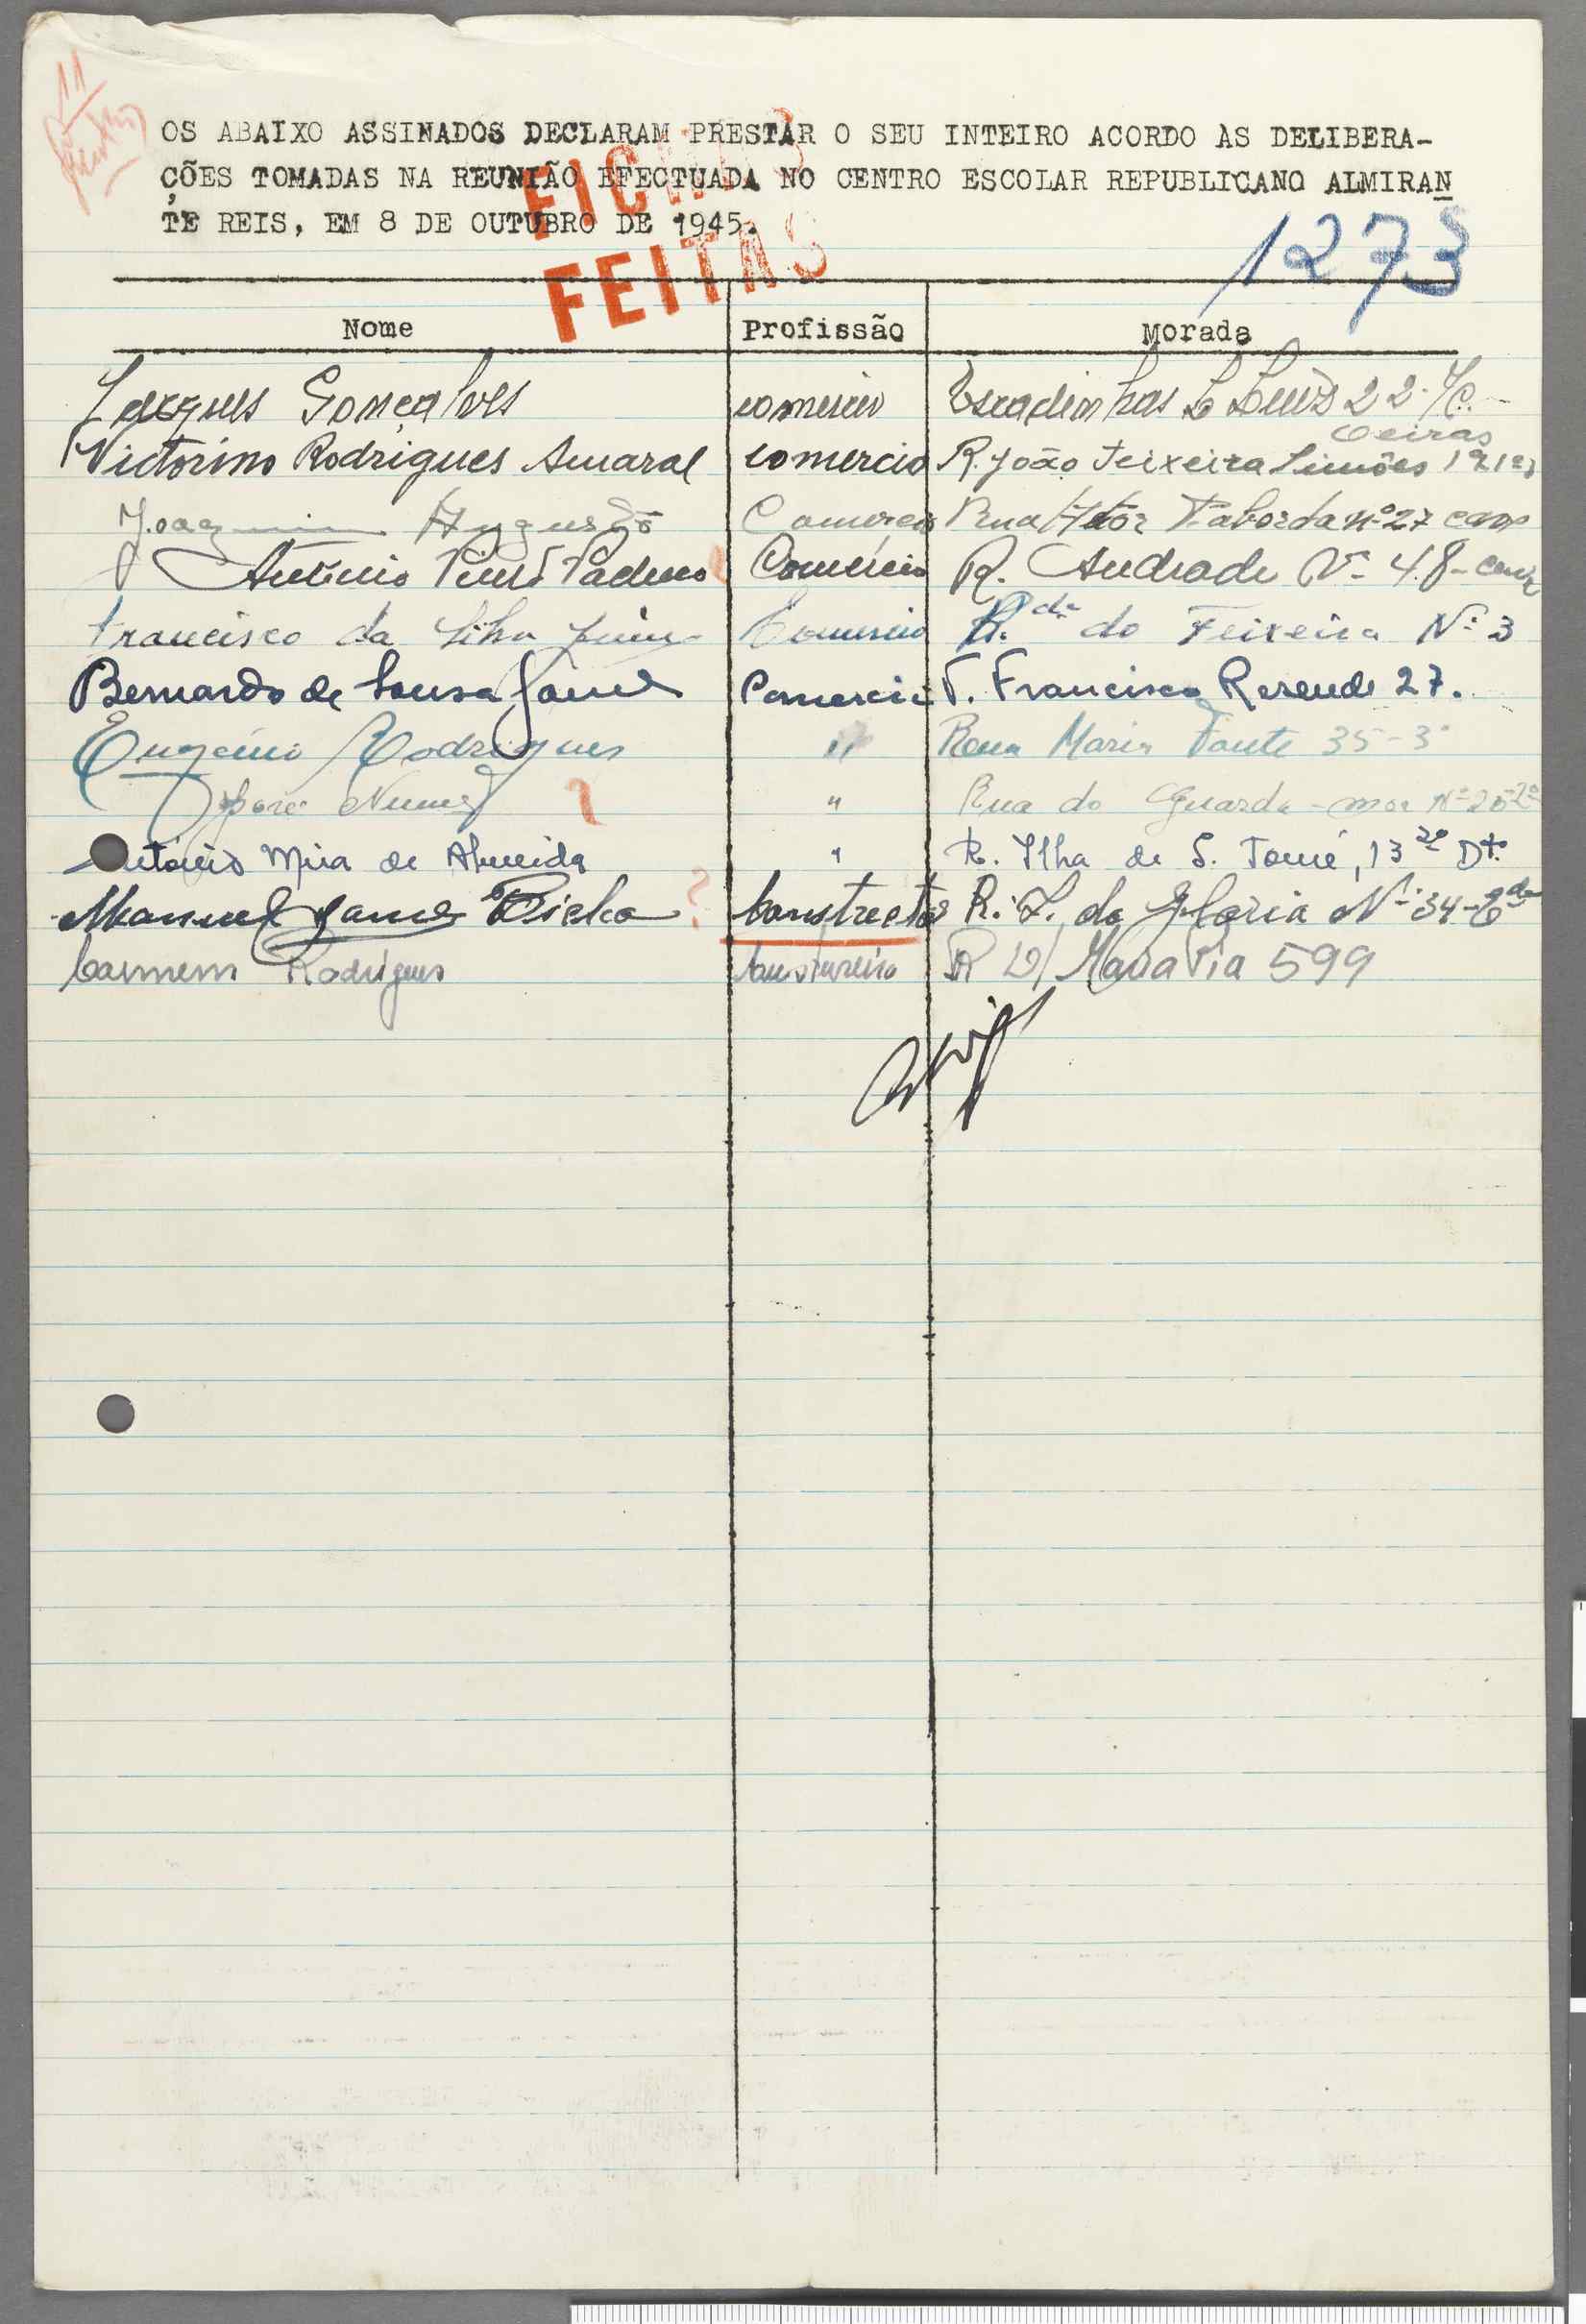 11
OS ABAIXO ASSINADOS DECLARAM PRESTAR O SEU INTEIRO ACORDO AS DELIBERA-
ÇÕES TOMADAS NA REUNIÃO EFECTUADA NO CENTRO ESCOLAR REPUBLICANO ALMIRAN
TE REIS, EM 8 DE OUTUBRO DE 1945.
FICHAS
FEITAS
1273
Nome Profissão Morada
Gonçalves comercio Escadinhas 22
Oeiras
Victorino Rodrigues Amaral comercio R. João Teixeira Simões
Joaquim Augusto Comercio Rua Heitor Taborda nº 27
António Comercio R. Andrade Nº 48
Francisco da Silva Comercio do Teixeira Nº 3
Bernardo de Sousa Comercio Francisco Resende 27.
Eugénio Rodrigues " Rua Maria Fonte 35-3º
Nunes ? " Rua do Guarda-mor Nº 20-2º
António Mira de Almeida " R. Ilha de S. Tomé, 13 2º Dtº
Manuel ? Constructor R. da Gloria Nº 34
Carmem Rodrigues Costureira R D/ Maria Pia 599